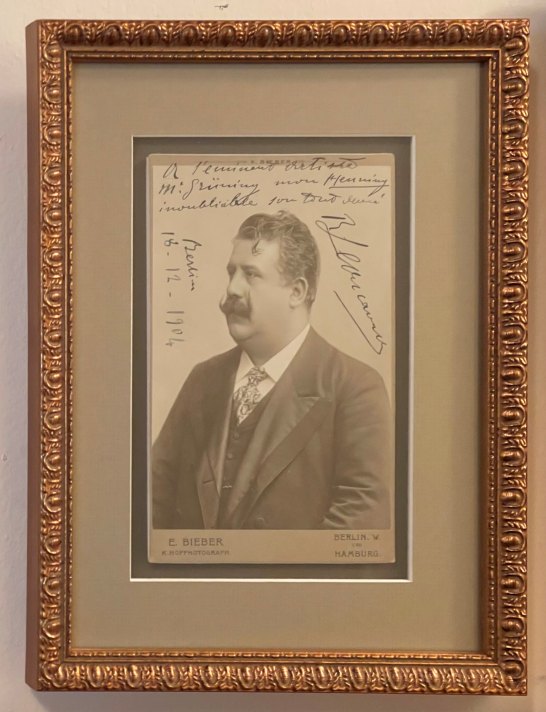 A l'éminent artiste
Mr. Grüning mon Henning
inoubliable son tout dévoué
RLeoncavallo
Berlin
18-12-1904
E. BIEBER
K. HOFPHOTOGRAPH.
BERLIN. W.
UND
HAMBURG.